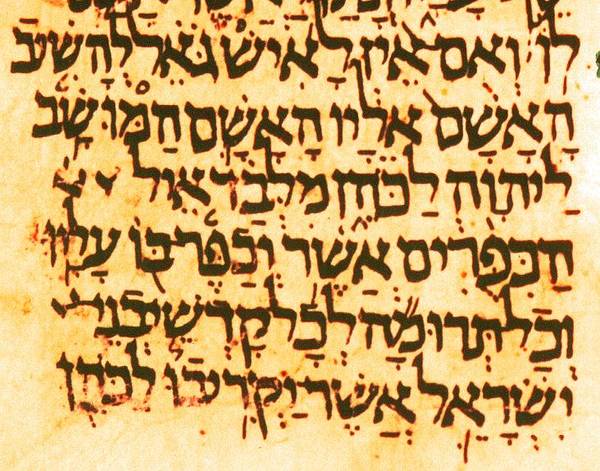 לוֹ וְאִם אֵין לָאִישׁ גֹּאֵל לְהָשִׁיב
הָאָשָׁם אֵלָיו הָאָשָׁם הַמּוּשָׁב
לַיהוָה לַכֹּהֵן מִלְּבַד אֵיל
הַכִּפֻּרִים אֲשֶׁר יְכַפֶּר בּוֹ עָלָיו
וְכָל תְּרוּמָה לְכָל קָדְשֵׁי בְנֵי
יִשְׂרָאֵל אֲשֶׁר יַקְרִיבוּ לַכֹּהֵן